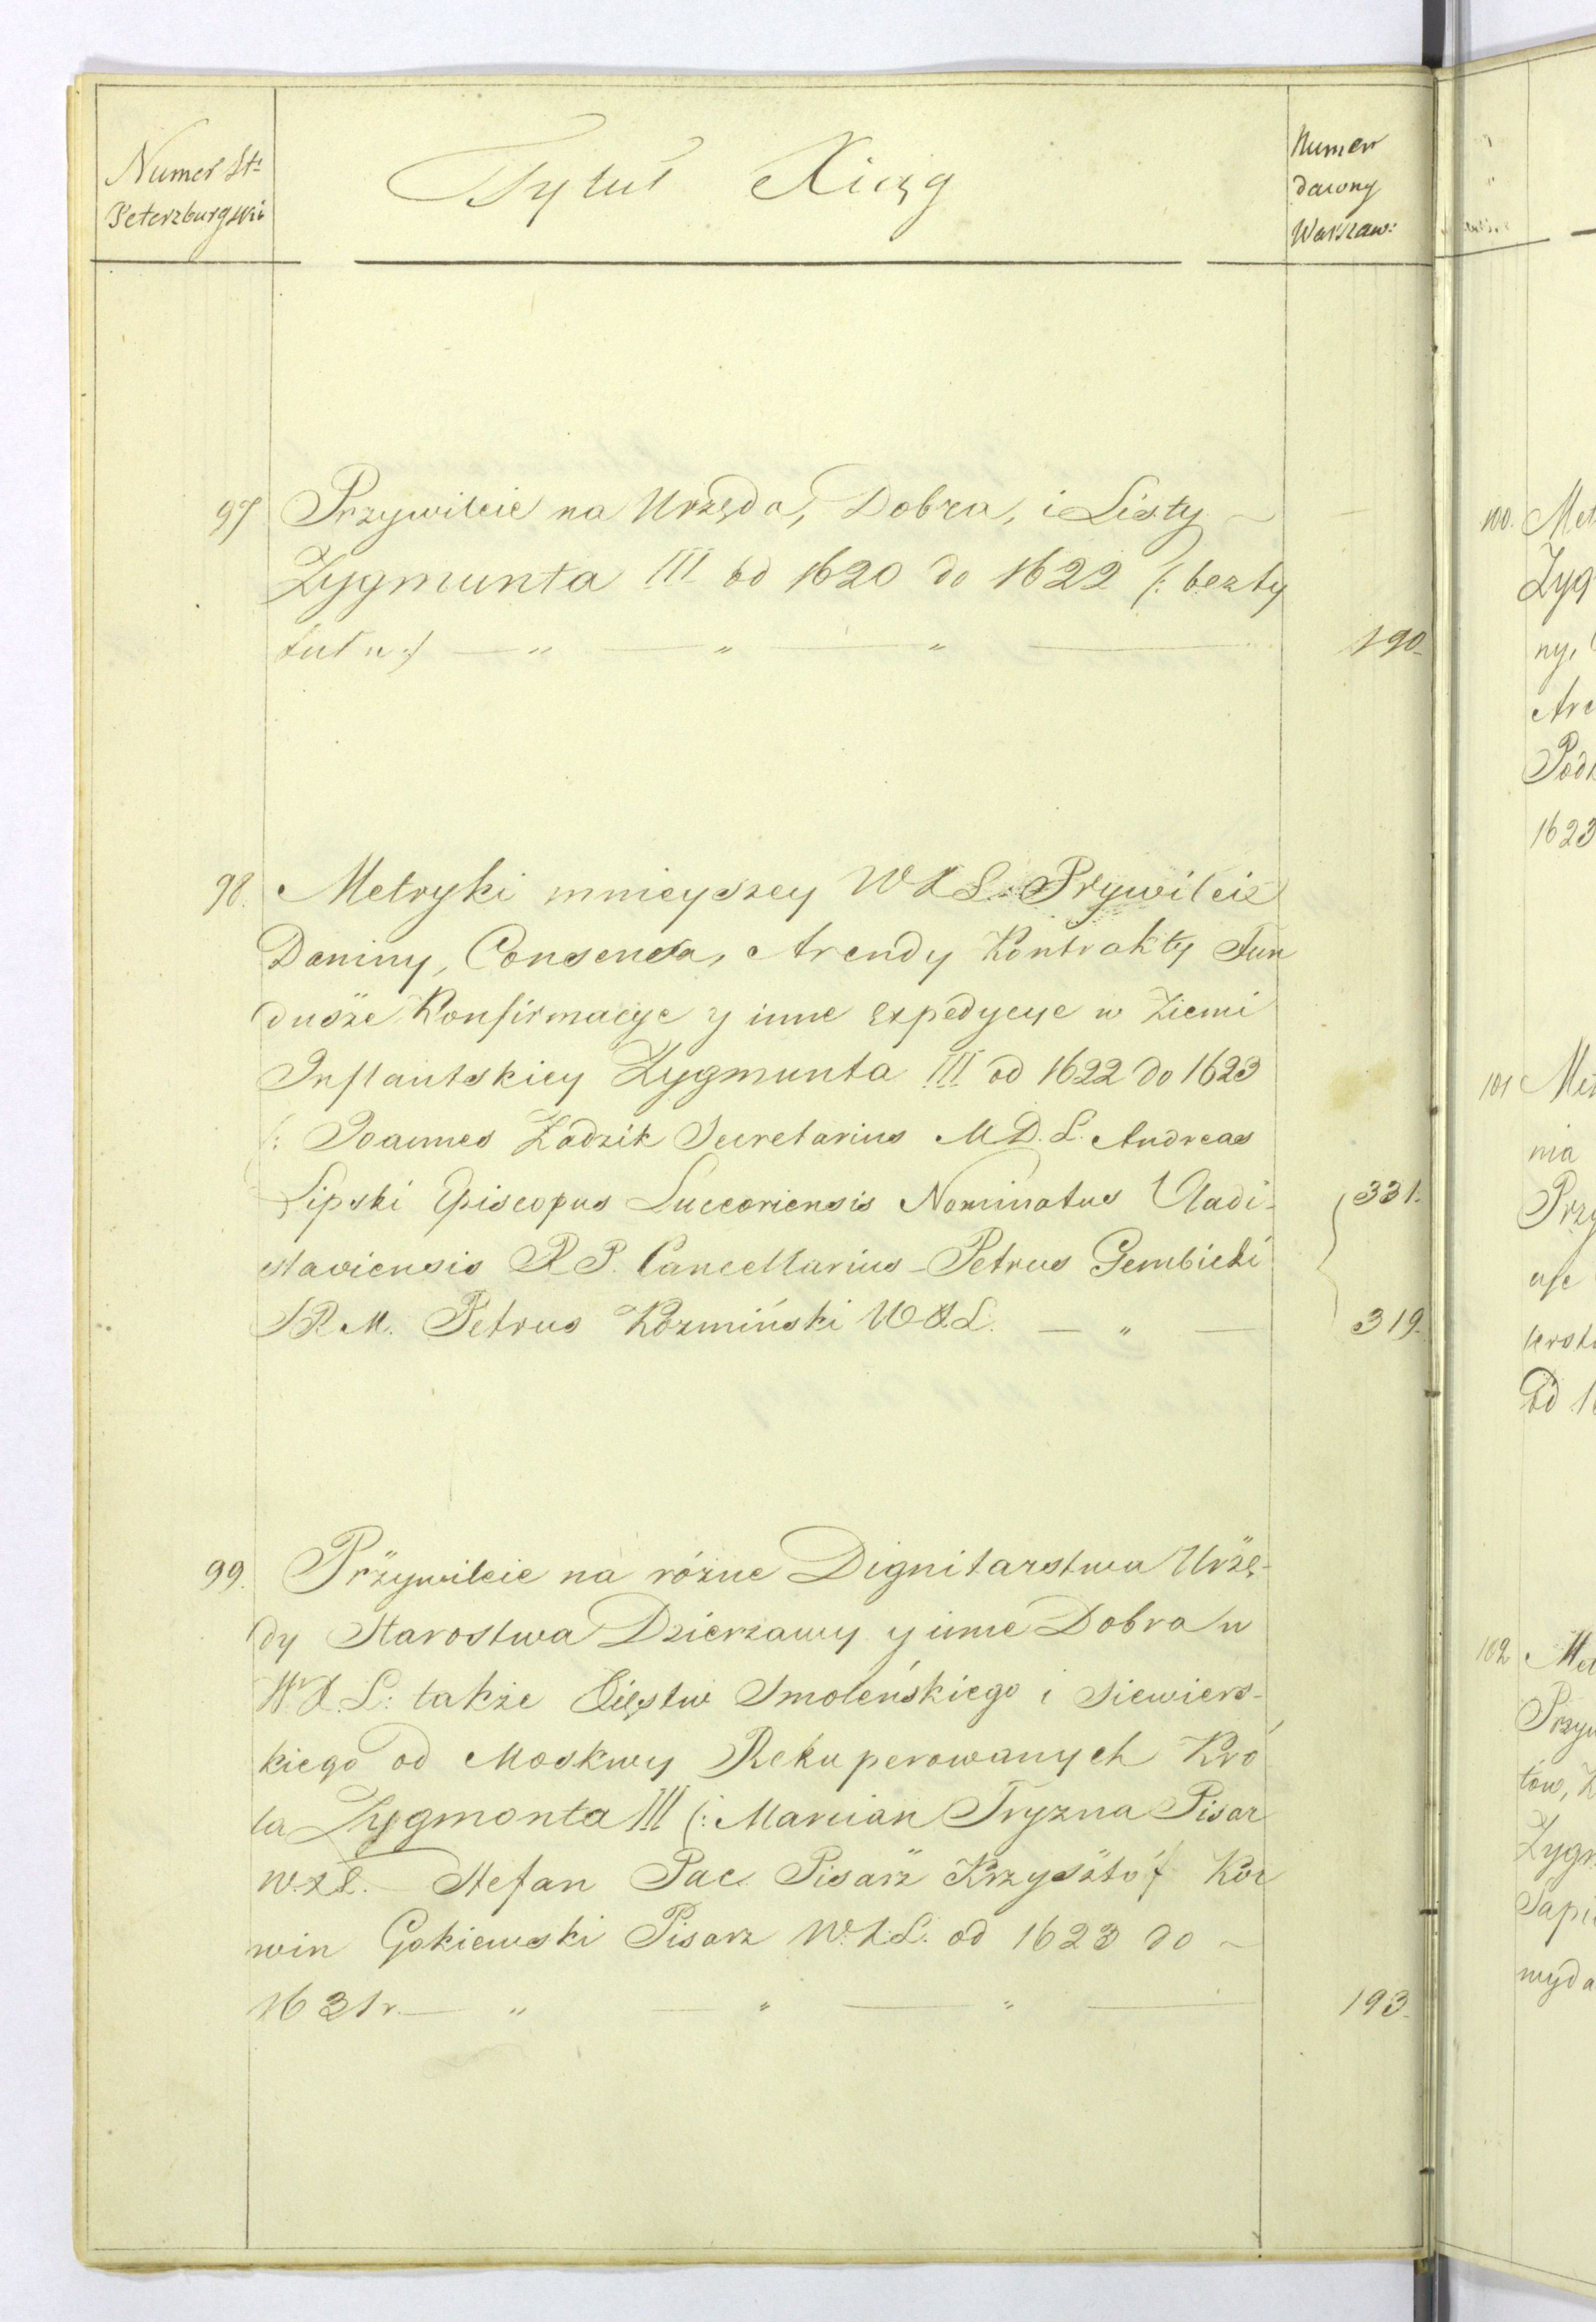 Numer St:
Peterzburgski
Tytuł Xiąg
Numer
dawny
Warszaw:
97 Przywileie na Urzęda, Dobra, i Listy
Zygmunta III od 1620 do 1622 /: bezty
tułu :/ — " — " — " — 190.
98. Metryki mnieyszey W X L. Prywileie
Daniny, Consensa, Arendy Kontrakty Fun
dusze Konfirmacye y inne Expedycye w Ziemi
Inflantskiey Zygmunta III od 1622 do 1623
/: Joannes Zadzik Secretarius M D. L. Andreas
Lipski Episcopus Lucceoriensis Nominatus Vladi- 331.
slaviensis R P. Cancellarius - Petrus Gembicki
S R M. Petrus Kozmiński W X. L. — " — 319.
99. Przywileie na różne Dignitarstwa Urzę-
dy Starostwa Dzierzawy y inne Dobra w
W. X. L: także Xięstw Smoleńskiego i Siewiers-
kiego od Moskwy Rekuperowanych Kró
la Zygmonta III (: Marcian Tryzna Pisar
W. X L. Stefan Pac Pisarz Krzysztóf Kor
win Gąkiewski Pisarz W. X. L. od 1623 do ~
1631 r. — " — " — " — 193.
100. Met
Zyg
ny,
Are
Pod
1623
101 Met
nia
Przy
102 Met
Przyw
tów,
Zyg
Sapi
wyda